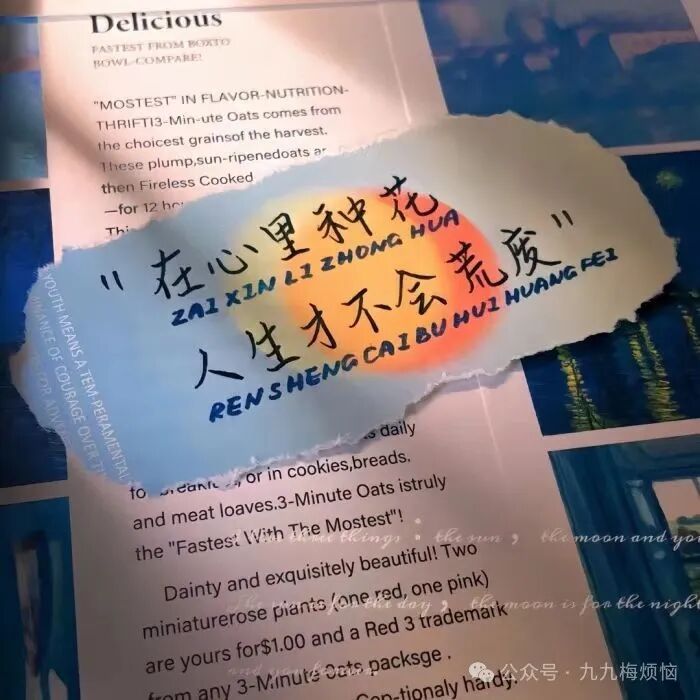 Delicious
FASTEST FROM BOXTO
BOWL-COMPARE!
"MOSTEST" IN FLAVOR-NUTRITION-
THRIFTI3-Min-ute Oats comes from
the choicest grainsof the harvest.
These plump,sun-ripenedoats
then Fireless Cooked
—for 12
"在心里种花
ZAI XIN LI ZHONG HUA
人生才不会荒废"
REN SHENG CAI BU HUI HUANG FEI
YOUTH MEANS A TEM-PERAMENTAL
OF COURAGE OVER
daily
or in cookies,breads.
and meat loaves.3-Minute Oats istruly
the "Fastest With The Mostest"!
three things: the sun, the moon and you
Dainty and exquisitely beautiful! Two
miniaturerose plants (one red, one pink)
for the day, the moon is for the night
are yours for$1.00 and a Red 3 trademark
from any 3-Minute oats packsge .
公众号·九九梅烦恼
hardy,